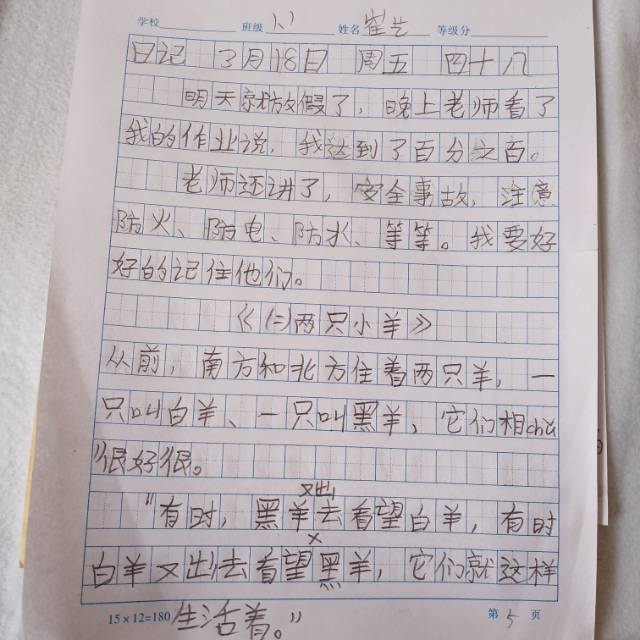 学校 班级 八 姓名 崔艺 等级分
日记 3月18日 周五 四十八
明天就放假了，晚上老师看了
我的作业说，我达到了百分之百。
老师还讲了，安全事故，注意
防火、防电、防水、等等。我要好
好的记住他们。
《(二)两只小羊》
从前，南方和北方住着两只羊，一
只叫白羊、一只叫黑羊，它们相chu
很好很。
又出
“有时，黑羊去看望白羊，有时
白羊又出去看望黑羊，它们就这样
生活着。”
15×12=180 第 5 页